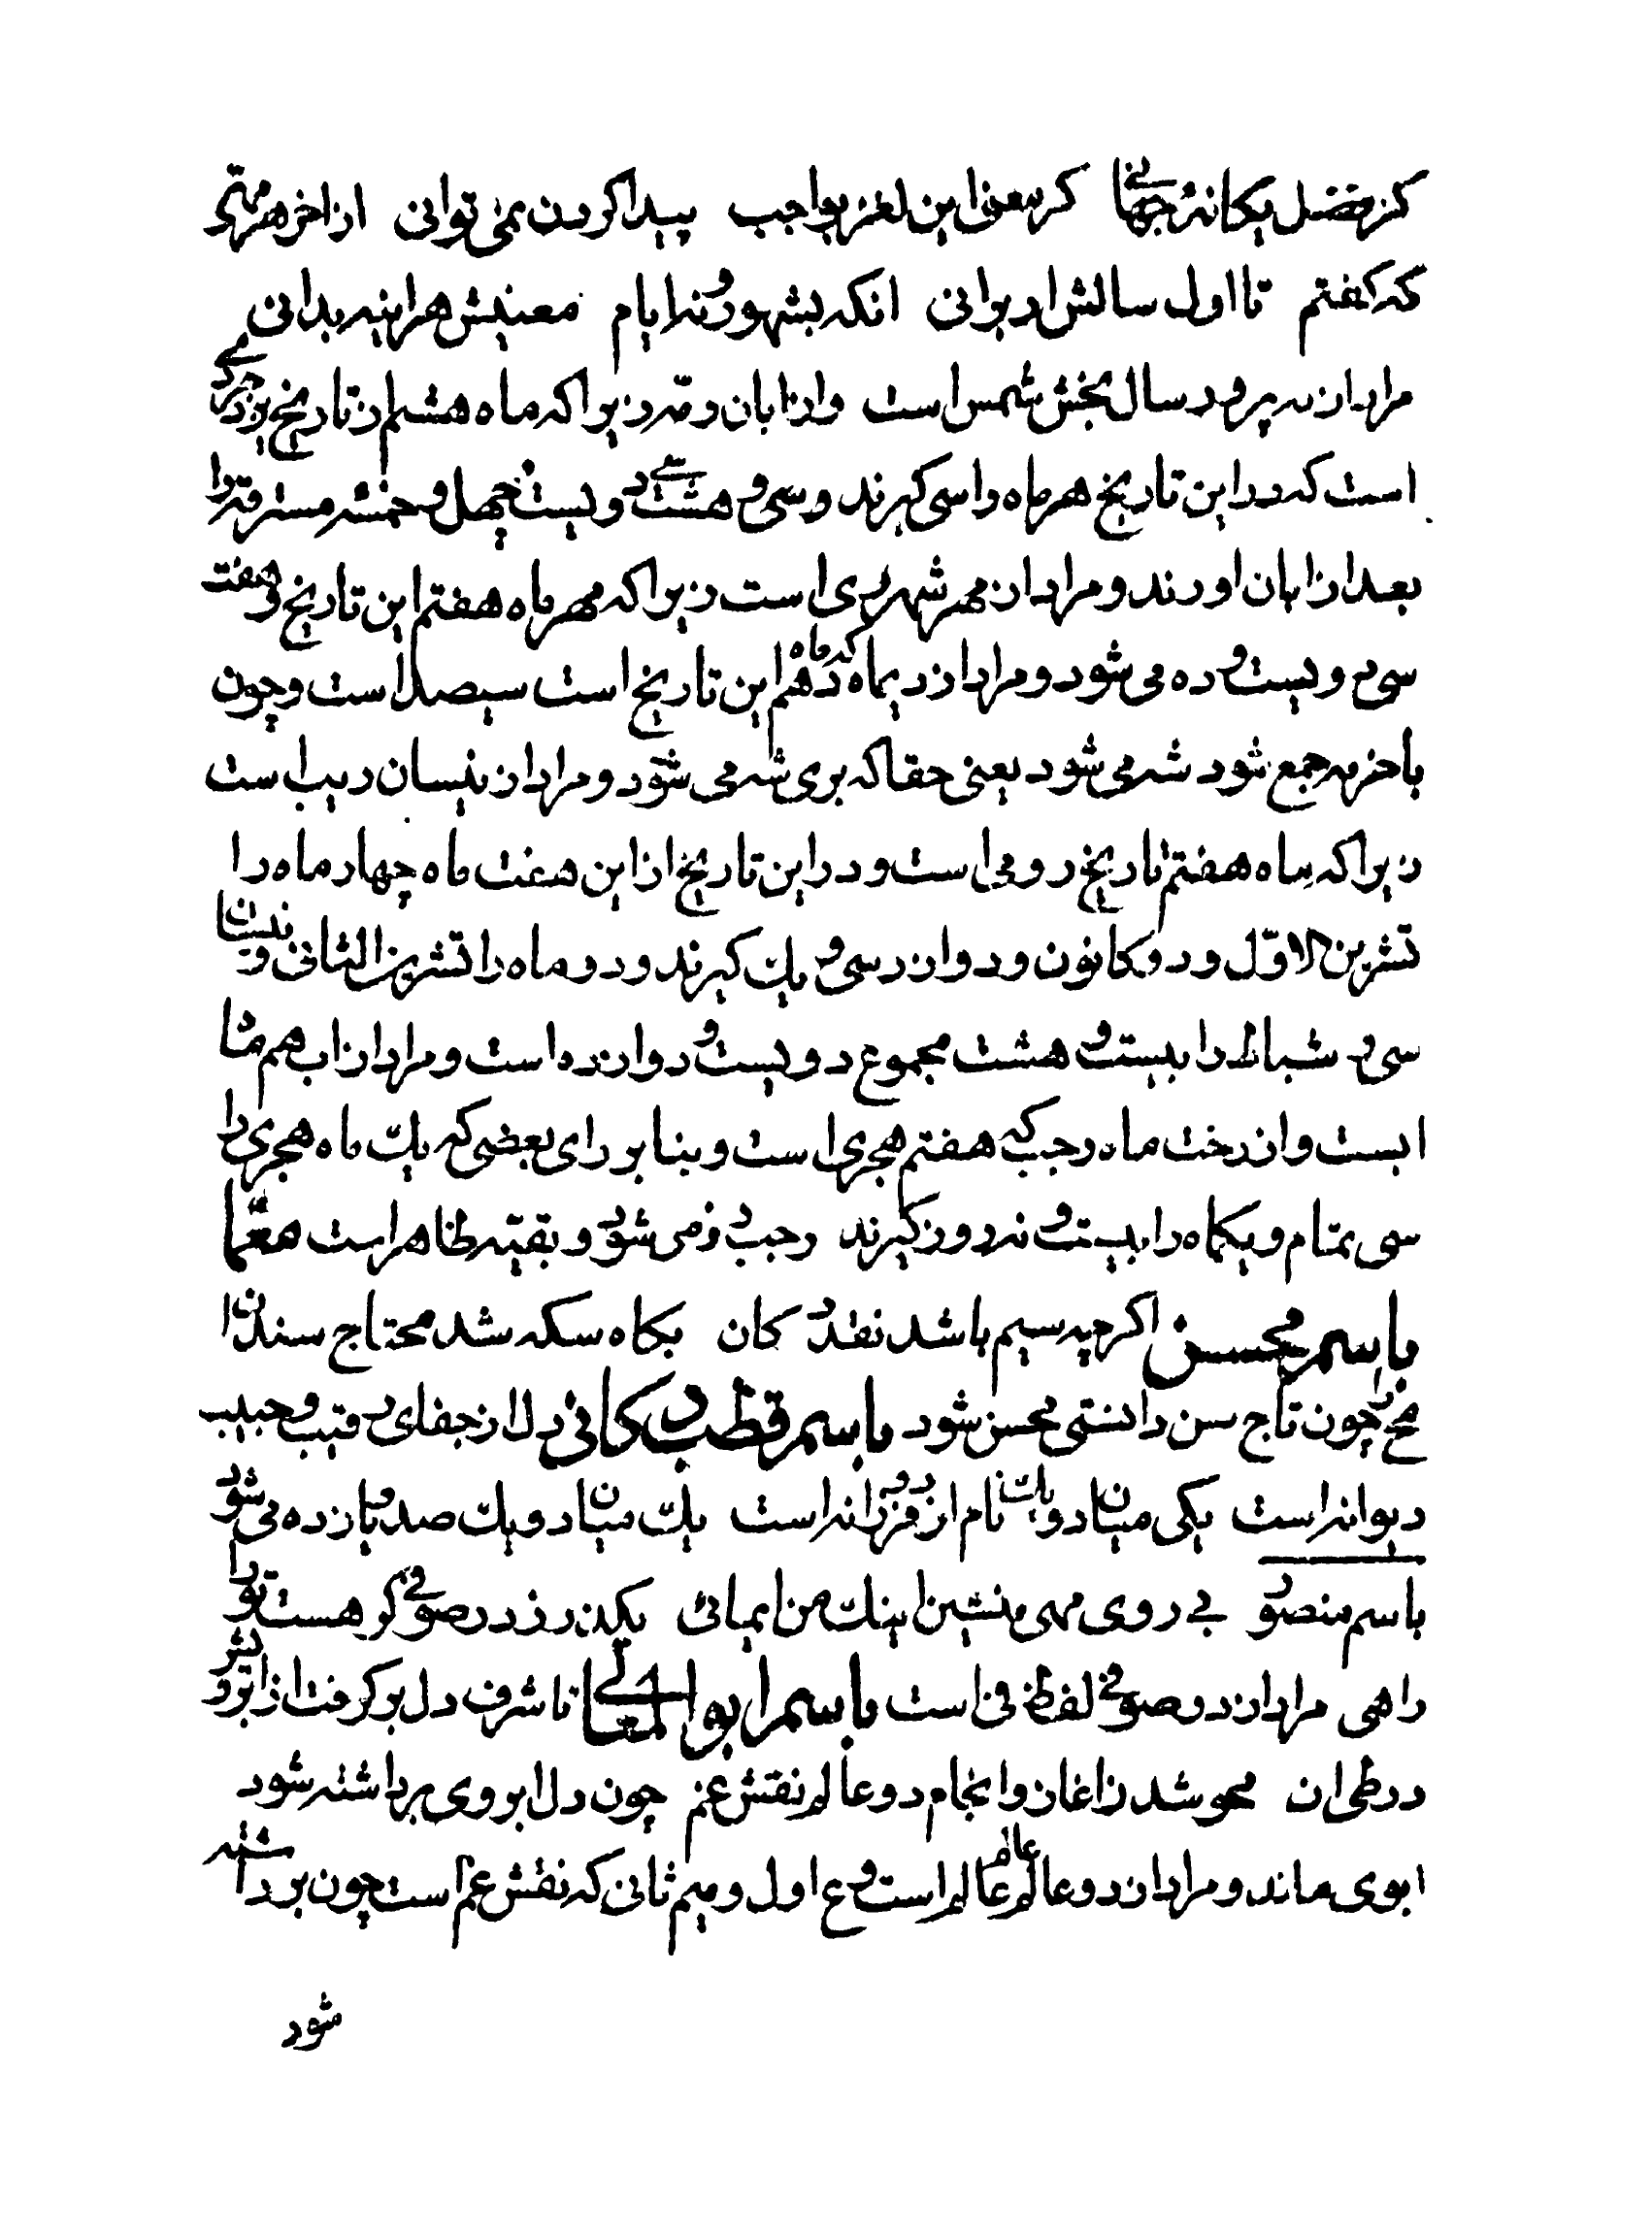 کز فضل یکانهٔ جهانی کر معنی این لغز بواجب پیدا کردن نمی توانی از اخر هر مهی
که کفتم تا اول سالش ار بوانی انکه بشهور و نه ایام معنیش هراینه بدانی
مراد از مه پرورد سال بخش شمس است واز ابان رمه زیرا که ماه هشتم از تاریخ یزدجردی
است که در این تاریخ هر ماه را سی کیرند و سی و هشت دویست و چهل و خمسه مسترقه را
بعد از ابان اورند و مراد از مهر شهر ری است زیرا که مهر ماه هفتم این تاریخ و هفت
سی دویست و ده می شود و مراد از دیماه که ماه دهم این تاریخ است سیصد است و چون
با خر مه جمع شود شه می شود یعنی حقا که بری شه می شود و مراد از نیسان ریب است
زیرا که ماه هفتم تاریخ رومی است و در این تاریخ از این هفت ماه چهار ماه را
تشرین الاول و دو کانون و دو اذر سی و یک کیرند و دو ماه را تشرین الثانی و نیسان
سی و شباط را بیست و هشت مجموع دویست و دوازده است و مراد از اب هم ما
ابست و از رخت ماه رجب که هفتم هجری است و بنا بر رای بعضی که یک ماه هجری را
سی تمام و یکماه را بیست و نه روز کیرند رجب رز می شود و بقیه ظاهر است معما
باسم محسن اکر چه سیم باشد نقد کان بکاه سکه شد محتاج سندان
مح را چون تاج سن دانستی محسن شود باسم قطب کانی دل از جفای رقیب و حبیب
دیوانه است یکی میان دو یک نام از در و فرزانه است یک میان دو یک صد و یازده می شود
باسم منصور بی روی مهی منشین اینک من ایمائی یکدن رز در صوفی کر هست تو را
راهی مراد از در صوفی لفظ فی است باسم ابوالمعالی تا شرف دل بر کرفت از ابروی
در طی ان محو شد ز اغاز و انجام دو عالم نقش غم چون دل ابروی برداشته شود
ابوی ماند و مراد از دو عالم عالم عالم است و ع اول و میم ثانی که نقش غم است چون برداشته
شود